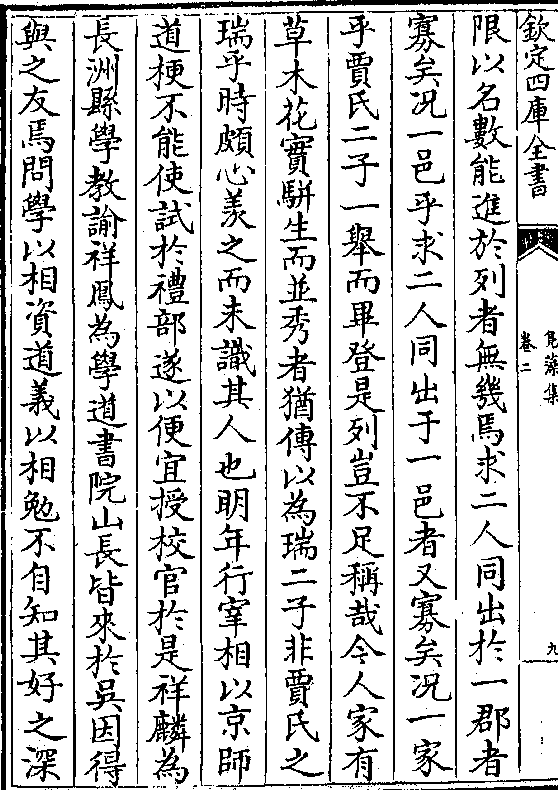 欽定四庫全書
鳧藻集
卷二
九
限以名數能進於列者無幾焉求二人同出於一郡者
寡矣况一邑乎求二人同出于一邑者又寡矣况一家
乎賈氏二子一舉而畢登是列豈不足稱哉今人家有
草木花實駢生而並秀者猶傳以為瑞二子非賈氏之
瑞乎時頗心羡之而未識其人也明年行宰相以京師
道梗不能使試於禮部遂以便宜授校官於是祥麟為
長洲縣學教諭祥鳳為學道書院山長皆來於吳因得
與之友焉問學以相資道義以相勉不自知其好之深